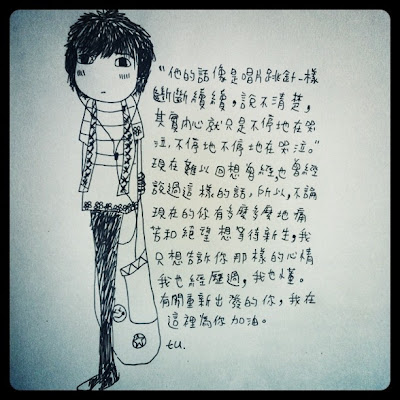 "他的話像是唱片跳針一樣
斷斷續續，說不清楚，
其實內心就只是不停地在哭
泣，不停地不停地在哭泣。"
現在難以回想曾經，也曾經
說過這樣的話，所以，不論
現在的你有多麼多麼地痛
苦和絕望想等待新生，我
只想告訴你那樣的心情
我也經歷過，我也懂。
有關重新出發的你，我在
這裡為你加油。
tu.